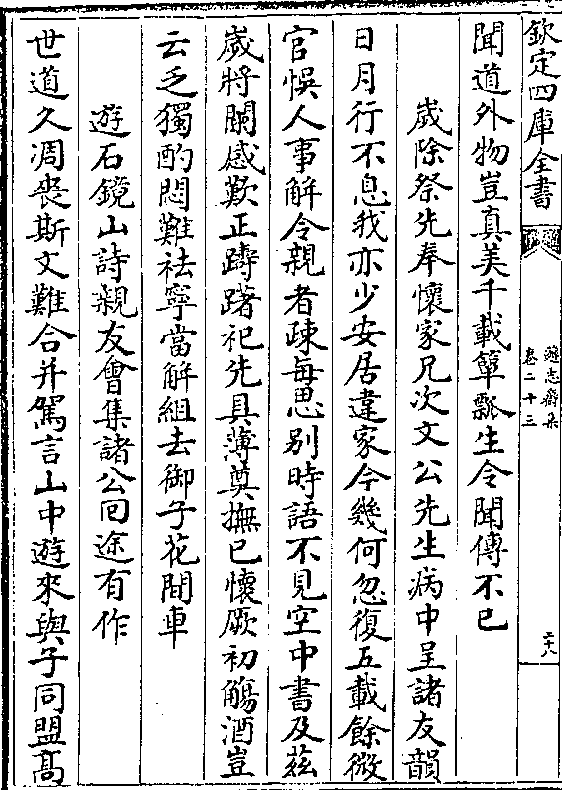 欽定四庫全書
遜志齋集
卷二十三
二十八
聞道外物豈真美千載簞瓢生令聞傳不已
歲除祭先奉懷家兄次文公先生病中呈諸友韻
日月行不息我亦少安居違家今幾何忽復五載餘微
官悞人事解令親者疎每思別時語不見空中書及茲
歲將闌感歎正躊躇祀先具薄奠撫已懷厥初觴酒豈
云乏獨酌悶難袪寧當解組去御子花間車
遊石鏡山詩親友會集諸公回途有作
世道久凋喪斯文難合并駕言山中遊來與子同盟髙